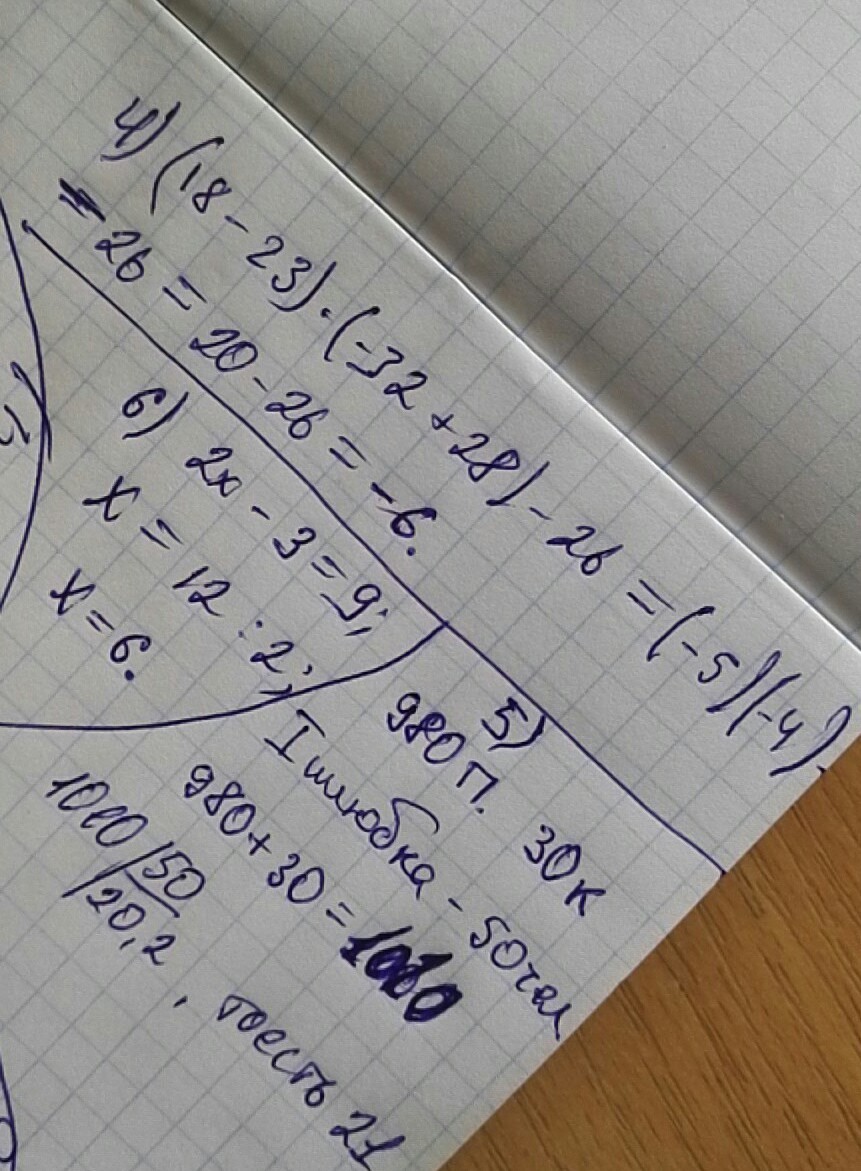 4) (18 - 23) · (-32 + 28) - 26 = (-5)(-4) -
- 26 = 20 - 26 = -6.
6) 2x - 3 = 9;
x = 12 : 2;
x = 6.
5)
980 п. 30 к
1 шлюбка - 50 чел
980 + 30 = 1010
1010 | 50
20,2 , тоесть 21